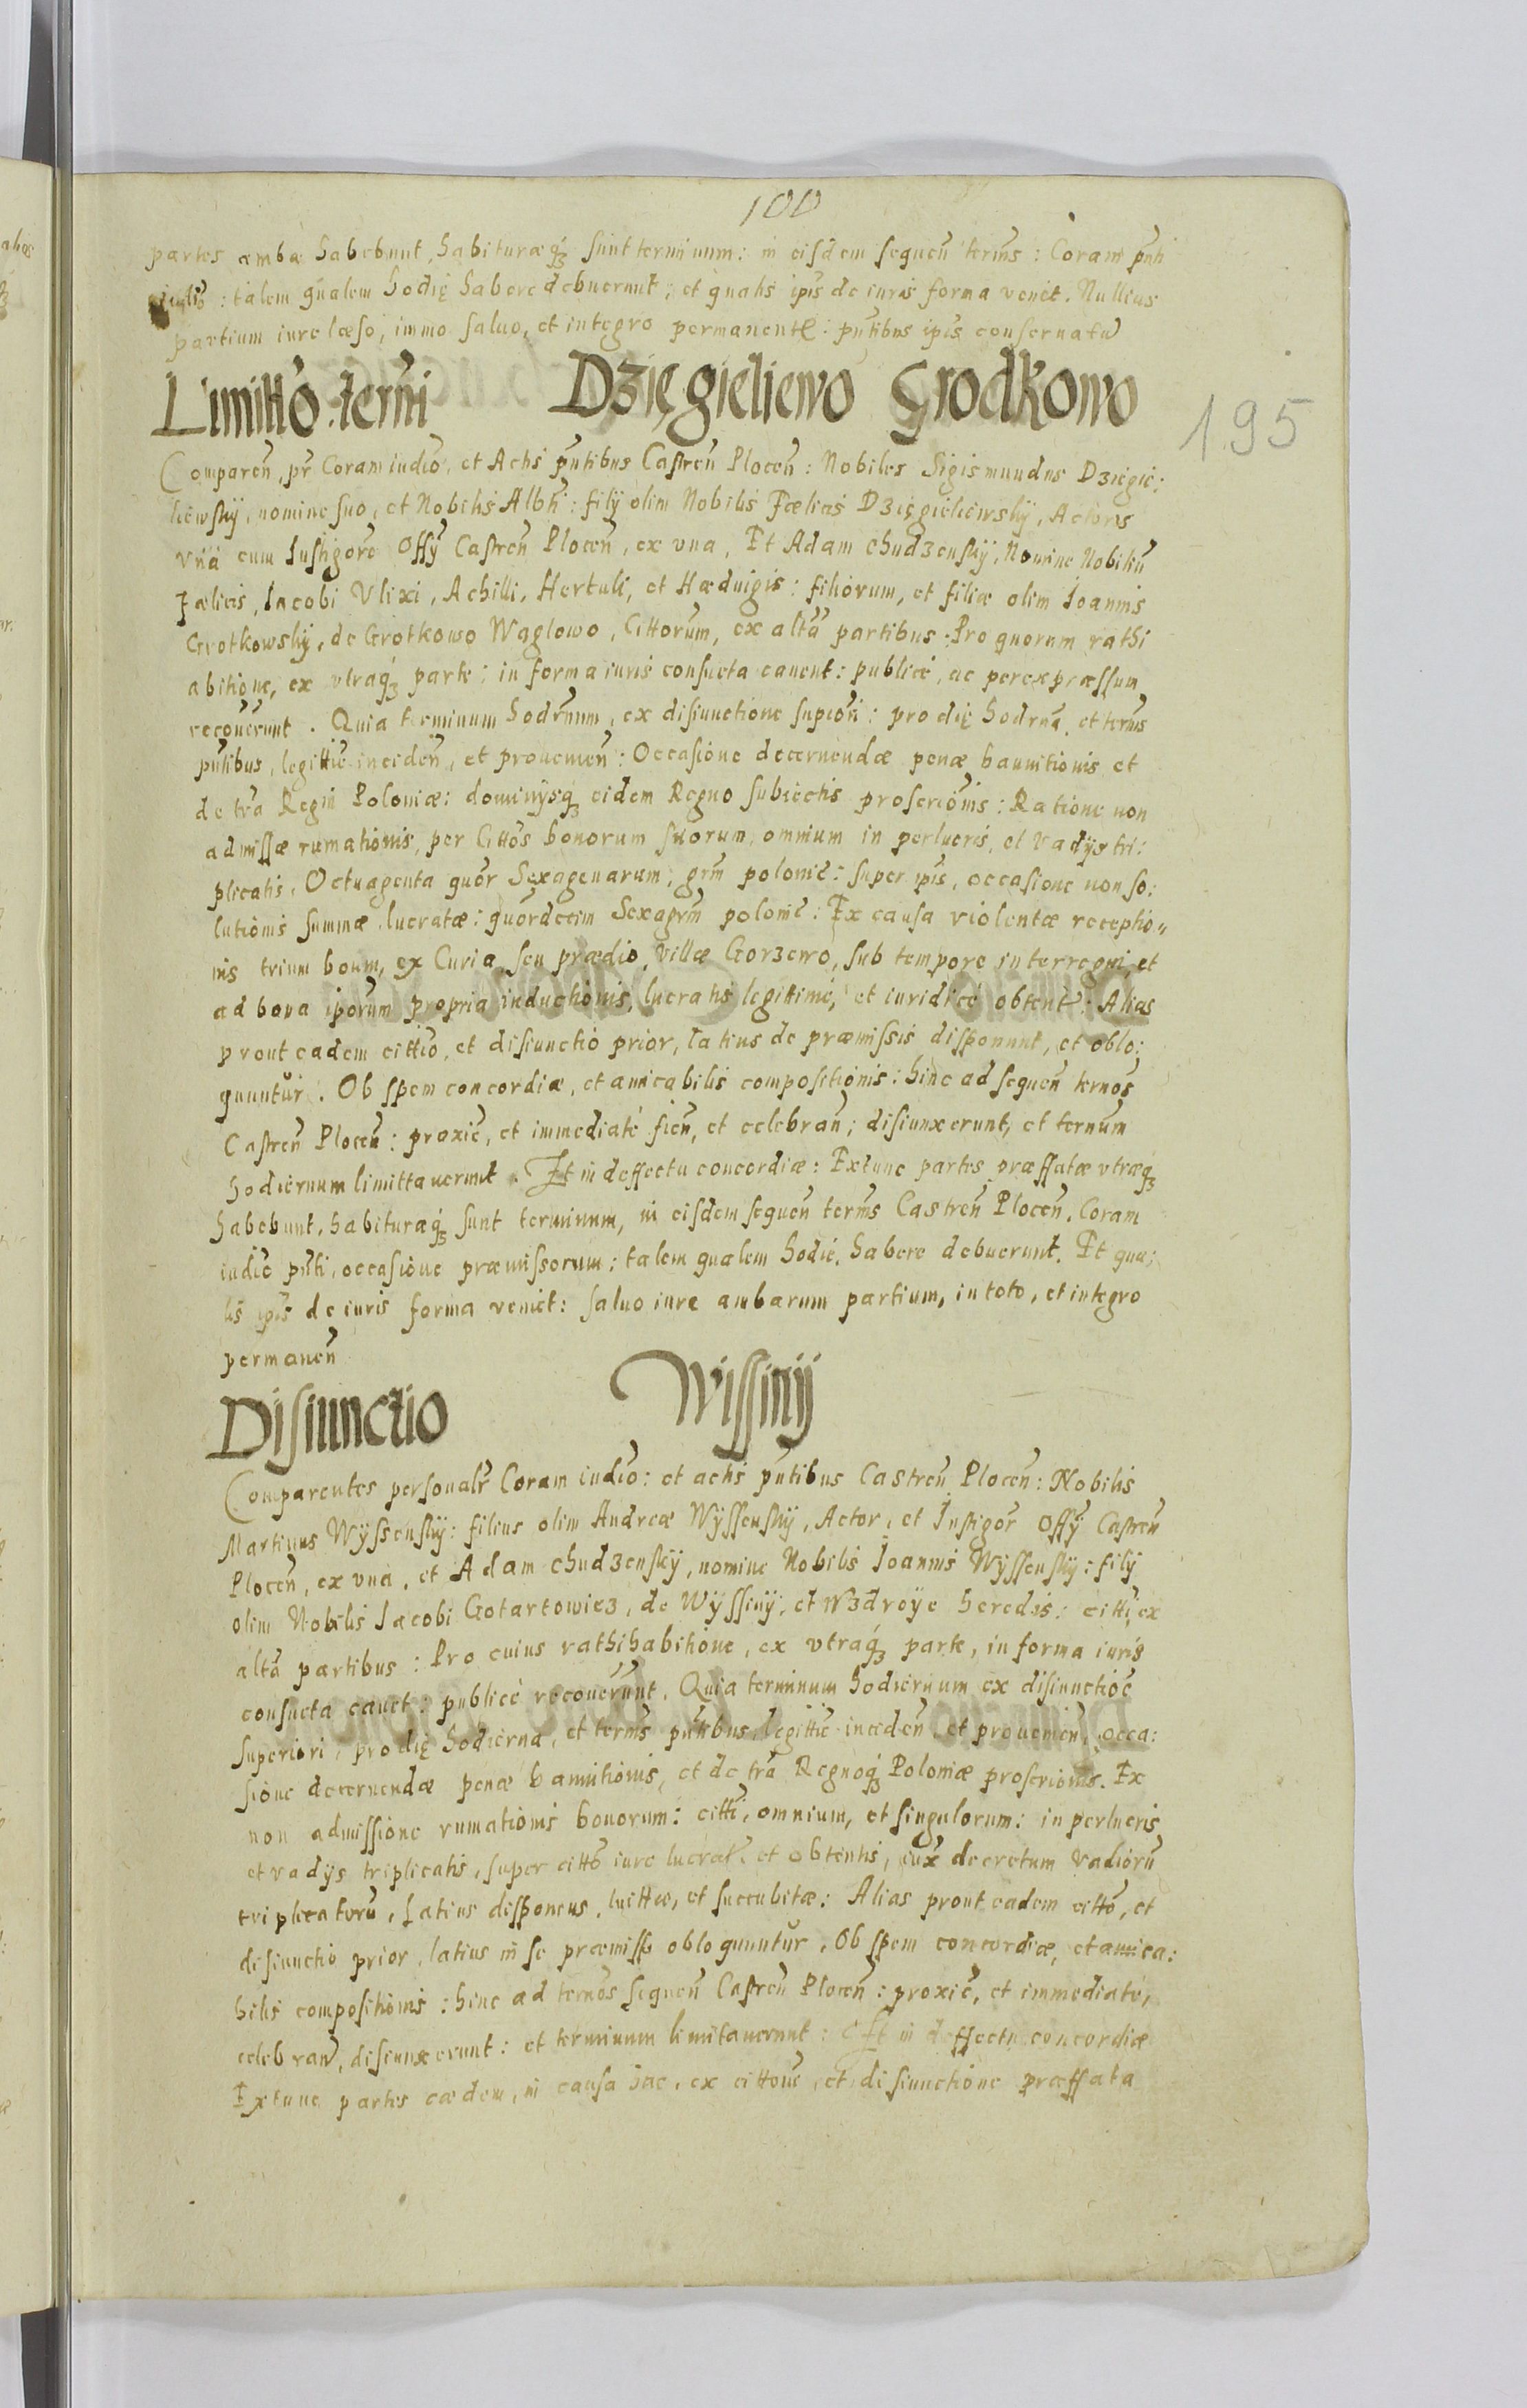 100
partes ambæ habebunt, habituræq₃ sunt terminum: in eisdem sequeñ termĩs: Coram pñti
iudio: talem qualem hodię habere debuerunt; et qualis ipĩs de iuris forma veniet. Nullius
partium iure læso, immo saluo, et integro permanente: pñtibus ipĩs conseruata
Limittõ termĩ Dzięgieliewo Grodkowo
195
Compareñ, pr̃ Coram iudiõ, et Actis pñtibus Castreñ Ploceñ: Nobiles Sigismundus Dziegie:
liewskÿ, nomine suo, et Nobilis Albtĩ: filÿ olim Nobilis Fœlicis Dzięgieliewskÿ, Actores
vnã cum Instigore Offÿ Castreñ Ploceñ, ex vna, Et Adam chudzenskÿ, Nomine Nobiliũ
Fœlicis, Iacobi Vlixi, Achilli, Hertuli, et Hæduigis: filiorum, et filiæ olim Ioannis
Grotkowskÿ, de Grotkowo Waglowo, Cittorum, ex altã partibus. Pro quorum rathi
abitione, ex vtraq₃ parte: in forma iuris consueta cauent: publicé, ac per expræssum
recouerunt. Quia terminum hodrnum, ex disiunctione supiori: pro die hodrna, et termĩs
pñtibus, legittiẽ incideñ, et prouenieñ: Occasione decernendæ penæ bannitionis et
de trã Regni Poloniæ: dominÿsq₃ eidem Regno subiectis proscriõnis: Ratione non
admissæ rumationis, per Cittos bonorum suorum, omnium in perlucris, et vadÿs tri:
plicatis, Octuaginta quõr Sexagenarum, grm̃ polonic̃: super ipĩs, occasione non so:
lutionis summæ, lucratæ: quõrdecim Sexagrm̃ polonic̃: Ex causa violentæ receptio„
nis trium boum, ex Curia, seu prædio, villæ Gorzewo, sub tempore interregni, et
ad bona iporum propria inductionis, lucratis legittimé, et iuridicé obtent: Alias
prout eadem cittiõ, et disiunctio prior, latius de præmissis disponunt, et oblo:
quuntur. Ob spem concordiæ, et amicabilis compositionis: hinc ad sequeñ ternõs
Castreñ Ploceñ: proxiẽ, et immediaté fieñ, et celebrañ; disiunxerunt, et ternũm
hodiernum limittauerunt. Et in deffectu concordiæ: Extunc partes præffatæ vtræq₃
habebunt, habituræq₃ sunt terminum, in eisdem sequeñ termĩs Castreñ Ploceñ, Coram
iudiõ pñti, occasione præmissorum; talem qualem hodié, habere debuerunt. Et qua;
lis ipĩs de iuris forma veniet: saluo iure ambarum partium, in toto, et integro
permaneñ
Disiunctio Wissinij
Comparentes personalr̃ Coram iudiõ: et actis pñtibus Castreñ Ploceñ: Nobilis
Martinus Wÿssenskÿ: filius olim Andreæ Wÿssenskÿ, Actor, et Instigor Offÿ Castreñ
Ploceñ, ex vna, et Adam chudzenskÿ, nomine Nobilis Ioannis Wÿssenskÿ: filÿ
olim Nobilis Iacobi Gotartowicz, de Wÿssinÿ, et Wzdroÿe heredis: citti, ex
altã partibus: Pro cuius rathihabitione, ex vtraq₃ parte, in forma iuris
consueta cauet: publicé recouerunt. Quia terminum hodiernum ex disiunctioẽ
superiori, pro dię hodierna, et termĩs pñtibus, legittiẽ incideñ, et prouenieñ, occa:
sione decernendæ penæ bannitionis, et de trã Regnoq₃ Poloniæ proscriõnis. Ex
non admissione rumationis bonorum: citti, omnium, et singulorum: in perlucris
et vadÿs triplicatis, super cittõ iure lucrat, et obtentis, iux̃ decretum vadiorũ
triplicatorũ, latius disponens, luittæ, et succubitæ: Alias prout eadem cittõ, et
disiunctio prior, latius in se præmissis obloquuntur, Ob spem concordiæ, et amica:
bilis compositionis: hinc ad ternõs sequeñ Castreñ Ploceñ: proxiẽ, et immediaté,
celebrañ, disiunxerunt: et terminum limitauerunt: Et in deffectu concordiæ
Extunc partes eædem, in causa hac, ex cittonẽ, et disiunctione præffata